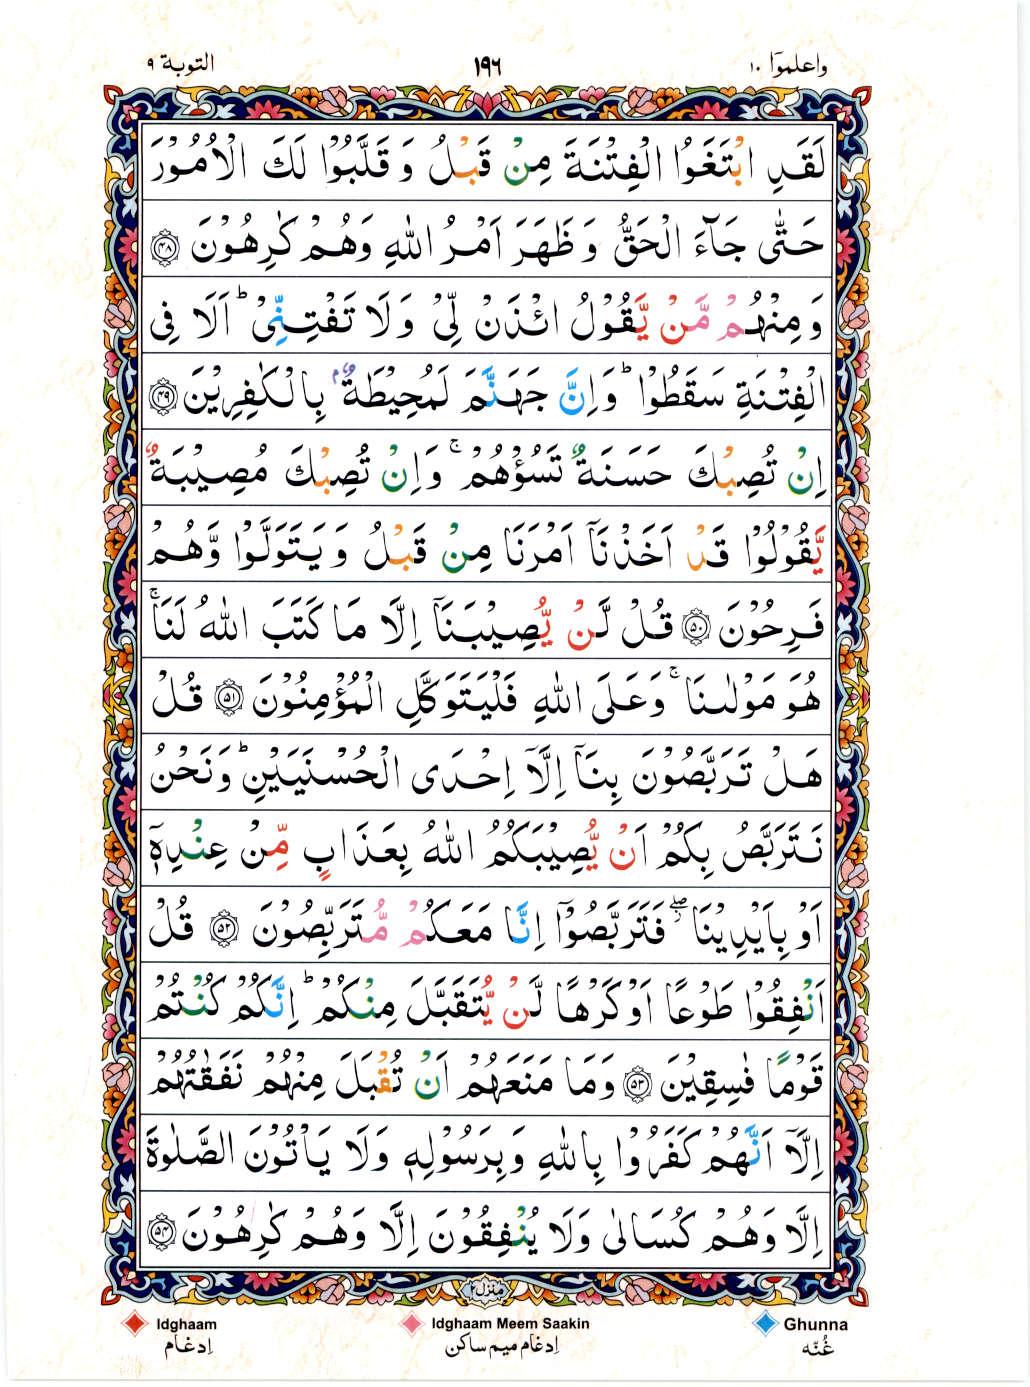 واعلموٓا ۱۰
۱۹۶
التوبة ۹
لَقَدِ ابْتَغَوُا الْفِتْنَةَ مِنْ قَبْلُ وَ قَلَّبُوْا لَكَ الْاُمُوْرَ
حَتّٰى جَآءَ الْحَقُّ وَ ظَهَرَ اَمْرُ اللّٰهِ وَهُمْ كٰرِهُوْنَ ۝۴۸
وَمِنْهُمْ مَّنْ يَّقُوْلُ ائْذَنْ لِّىْ وَلَا تَفْتِنِّىْ ؕ اَلَا فِى
الْفِتْنَةِ سَقَطُوْا ؕ وَاِنَّ جَهَنَّمَ لَمُحِيْطَةٌۢ بِالْكٰفِرِيْنَ ۝۴۹
اِنْ تُصِبْكَ حَسَنَةٌ تَسُؤْهُمْ ۚ وَاِنْ تُصِبْكَ مُصِيْبَةٌ
يَّقُوْلُوْا قَدْ اَخَذْنَاۤ اَمْرَنَا مِنْ قَبْلُ وَيَتَوَلَّوْا وَّهُمْ
فَرِحُوْنَ ۝۵۰ قُلْ لَّنْ يُّصِيْبَنَاۤ اِلَّا مَا كَتَبَ اللّٰهُ لَنَا ۚ
هُوَ مَوْلٰىنَا ۚ وَعَلَى اللّٰهِ فَلْيَتَوَكَّلِ الْمُؤْمِنُوْنَ ۝۵۱ قُلْ
هَلْ تَرَبَّصُوْنَ بِنَاۤ اِلَّاۤ اِحْدَى الْحُسْنَيَيْنِ ؕ وَنَحْنُ
نَتَرَبَّصُ بِكُمْ اَنْ يُّصِيْبَكُمُ اللّٰهُ بِعَذَابٍ مِّنْ عِنْدِهٖۤ
اَوْ بِاَيْدِيْنَا ۖؗ فَتَرَبَّصُوْۤا اِنَّا مَعَكُمْ مُّتَرَبِّصُوْنَ ۝۵۲ قُلْ
اَنْفِقُوْا طَوْعًا اَوْ كَرْهًا لَّنْ يُّتَقَبَّلَ مِنْكُمْ ؕ اِنَّكُمْ كُنْتُمْ
قَوْمًا فٰسِقِيْنَ ۝۵۳ وَمَا مَنَعَهُمْ اَنْ تُقْبَلَ مِنْهُمْ نَفَقٰتُهُمْ
اِلَّاۤ اَنَّهُمْ كَفَرُوْا بِاللّٰهِ وَبِرَسُوْلِهٖ وَلَا يَاْتُوْنَ الصَّلٰوةَ
اِلَّا وَهُمْ كُسَالٰى وَلَا يُنْفِقُوْنَ اِلَّا وَهُمْ كٰرِهُوْنَ ۝۵۴
منزل ۲
Idghaam
Idghaam Meem Saakin
Ghunna
اِدغَام
اِدغام میم ساکن
غُنّه